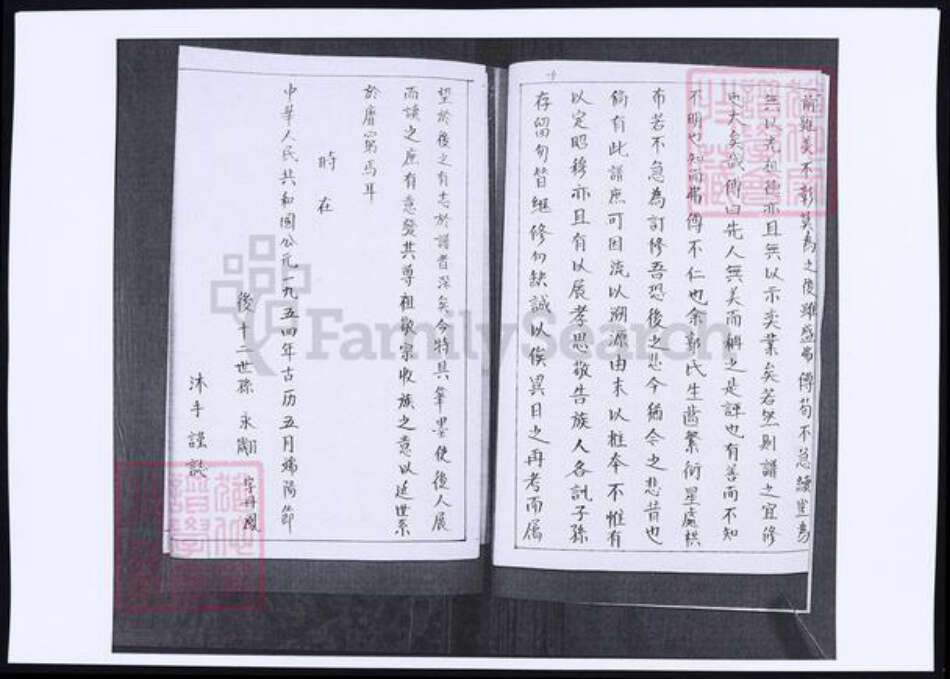 前雖美不彰莫為之後雖盛弗傳苟不急續豈為
無以光祖德亦且無以示奕業矣若然則譜之宜修
也大矣哉傳曰先人無美而稱之是誣也有善而不知
不明也知而弗傳不仁也余鄭氏生齒繁衍星處棋
布若不急為訂修吾恐後之悲今猶今之悲昔也
倘有此譜庶可因流以溯源由末以桩本不惟有
以定昭穆亦且有以展孝思敬告族人各訊子孫
存留勿替継修勿缺誠以俟異日之再考而属
望於後之有志於譜者深矣今特具筆墨使後人展
而读之庶有意發其尊祖敬宗收族之意以延世系
於磨窮焉耳
時在
中華人民共和國公元一九五四年古历五月端陽節
後十二世孫 永翽 字丹鳳
沐手謹誌
FamilySearch